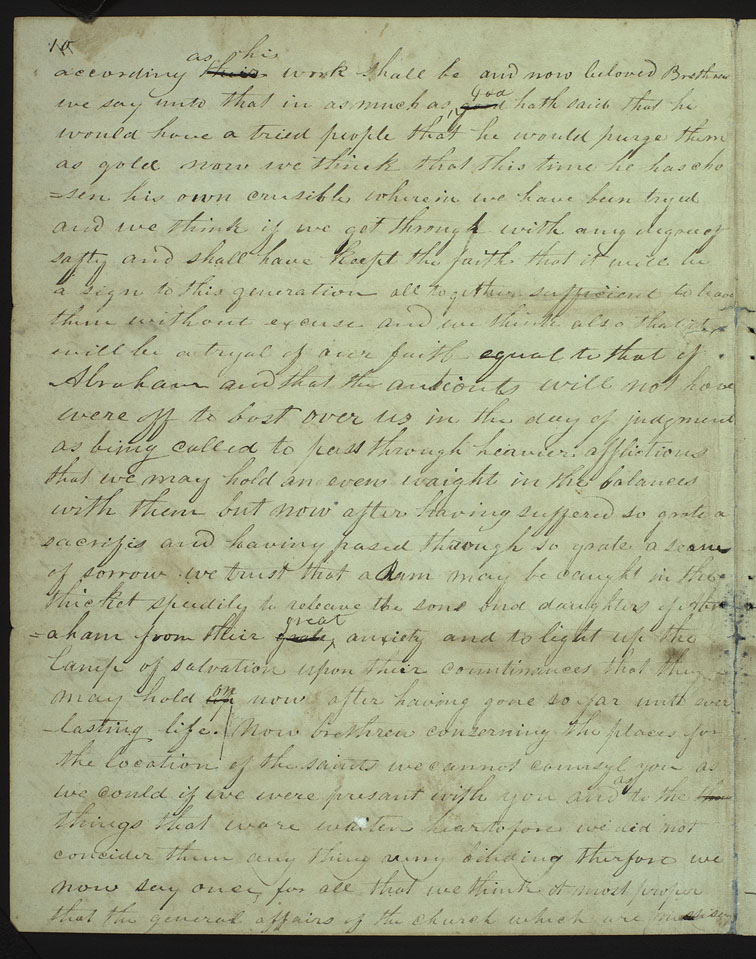 10
according as his their work shall be and now beloved Brethren
we say unto that in as much as god good hath said that he
would have a tried people that he would purge them
as gold now we think that this time he has cho
=sen his own crusible wherein we have been tryed
and we think if we get through with any degree of
safty and shall have keept the faith that it will be
a sign to this generation all together sufficient to leave
them without excuse and we think also that it
will be a tryal of our faith equal to that of
Abraham and that the antionts will not have
were off to bost over us in the day of judgment
as being called to pass through heavier afflictions
that we may hold an even waight in the balances
with them but now after having suffered so grate a
sacrifis and having pased through so grate a seane
of sorrow we trust that a Ram may be caught in the
thicket speedily to releave the sons and daughters of Abra
=aham from their great grate anxiety and to light up the
lamp of salvation upon their countinances that they
may hold on up now after having gone so far unto ever
-lasting life. Now brethren conserning the places for
the location of the saints we cannot counsyl you as
we could if we were presant with you and as to the the
things that ware writen heartofore we did not
consider them any thing very bidding therfore we
now say once for all that we think it most proper
that the general affairs of the church which are